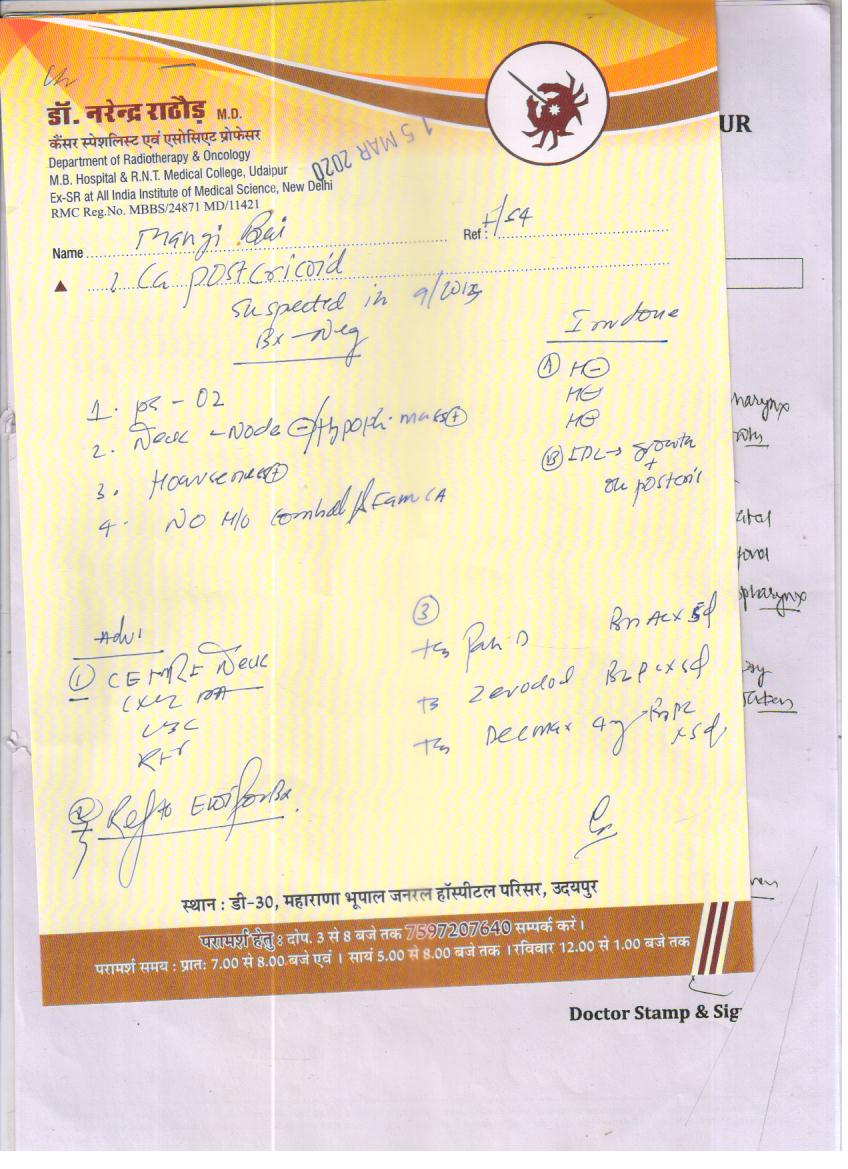 डॉ. नरेन्द्र राठौड़ M.D.
कैंसर स्पेशलिस्ट एवं एसोसिएट प्रोफेसर
Department of Radiotherapy & Oncology
M.B. Hospital & R.N.T. Medical College, Udaipur
Ex-SR at All India Institute of Medical Science, New Delhi
RMC Reg.No. MBBS/24871 MD/11421
15 MAR 2020
UR
Name Mangi Bai Ref : F/54
? Ca postcricoid
suspected in 9/
Bx - Neg
1. ps - 02
2. Neck - Node ⊖/ mass ⊕
3. Hoarseness ⊕
4. NO H/O
Inv done
(A) H⊖
H⊖
H⊖
(B) IDL → growth
+
on posteri
harynx
pharynx
Advi
(1) CE MRI Neck
CXR PA
CBC
RFT
(2) Ref to for Bx.
(3)
Tb Pan-D x 5d
Tb Zerodol x 5d
Tb Decmax 4mg x 5d
स्थान : डी-30, महाराणा भूपाल जनरल हॉस्पीटल परिसर, उदयपुर
परामर्श हेतु : दोप. 3 से 8 बजे तक 7597207640 सम्पर्क करे।
परामर्श समय : प्रातः 7.00 से 8.00 बजे एवं । सायं 5.00 से 8.00 बजे तक । रविवार 12.00 से 1.00 बजे तक
Doctor Stamp & Sig